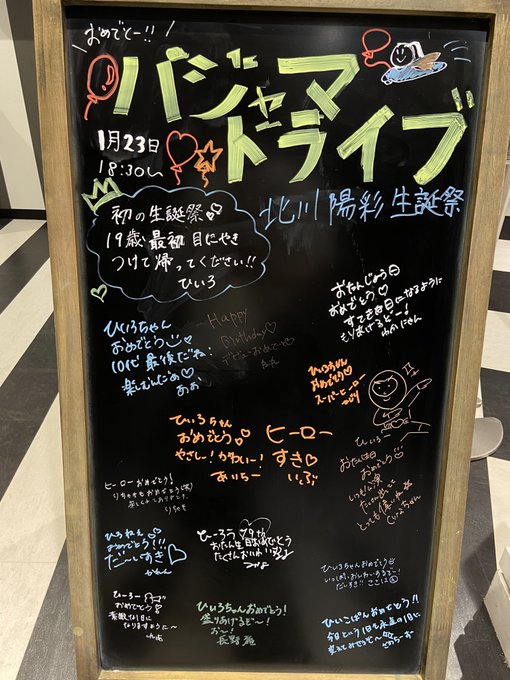 おめでとー!!
パジャマ
ドライブ
1月23日
18:30〜
北川陽彩生誕祭
初の生誕祭
19歳最初目にやき
つけて帰ってください!!
ひいろ
おたんじょう日
おめでとう♡
すてきな日になるように
もりあげるぞー!
ひいろちゃん
おめでとう
10代最後だね!
楽しむんだぁ♡
Happy
Birthday♡
ひいろちゃん
おめでとう♡
スーパーヒーロー
ひいろちゃん
おめでとう♡
やさしい!かわいー!
あいちー
ヒーロー
すき♡
いぶ
ひいろー
お誕生日
おめでとう
いつも
とっても偉いね
ヒーローおめでとう!
おめでとう!!!
だーいすき♡
ひーろう 19th
おたん生日おめでとう
たくさんお祝い
ひいろちゃんおめでとう
だいすき!! ここは
ひーろー
おめでとう
素敵な1日に
なりますように〜
ひいろちゃんおめでとう!
盛りあげるぞ〜!
お〜!
長野雅
ひいこぱんおめでとう!!
今日という1日も永遠の1日に